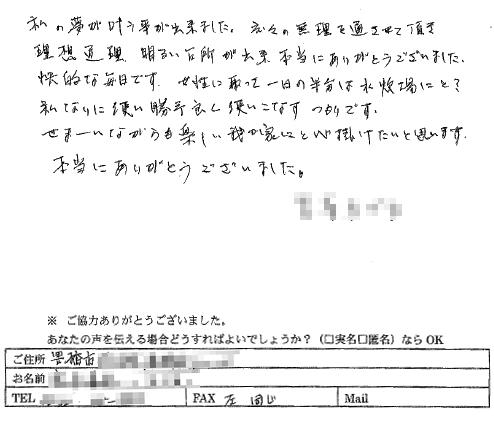 私の夢が叶う事が出来ました。元々の無理を通させて頂き
理想通理、明るい台所が出来本当にありがとうございました。
快的な毎日です。女性に取って一日の半分は水牧場にと?
私なりに使い勝手良く使いこなすつもりです。
せまーいながらも楽しい我が家にと心掛けたいと思います。
本当にありがとうございました。
※ ご協力ありがとうございました。
あなたの声を伝える場合どうすればよいでしょうか?(□実名□匿名)ならOK
ご住所
お名前
TEL FAX 左 同じ Mail